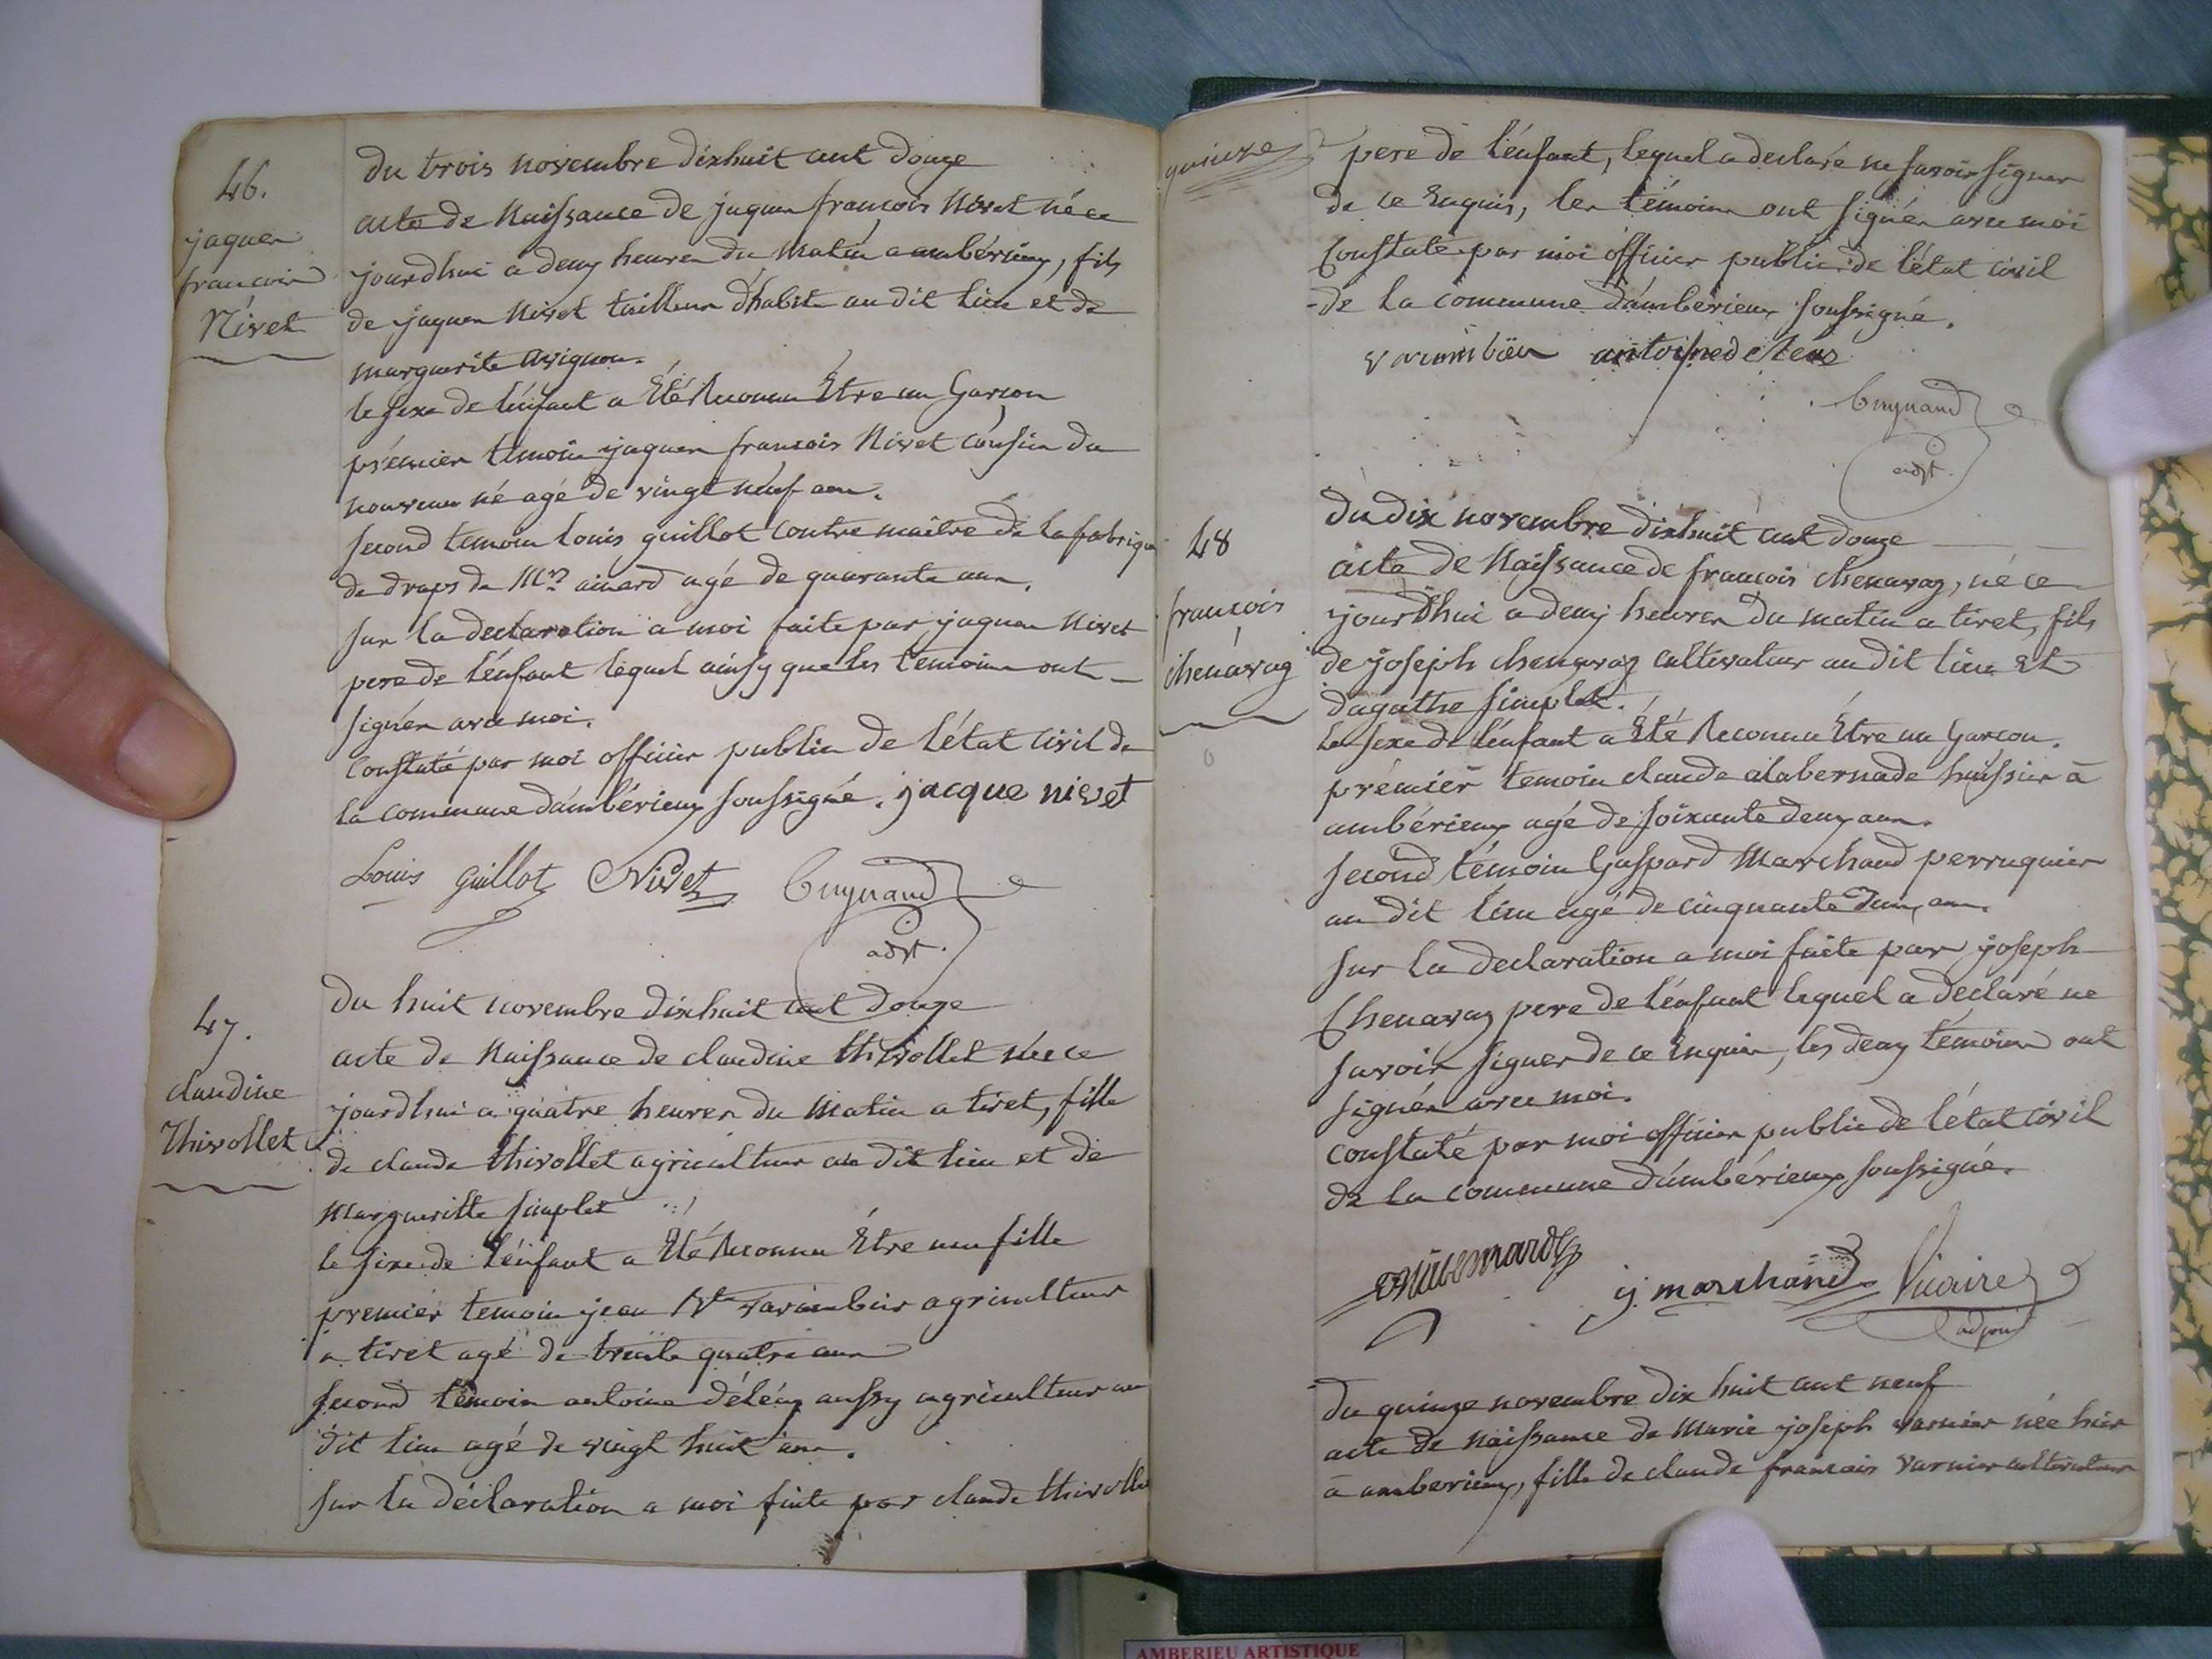 46.
jaques
francois
Nivet
du trois novembre dixhuit cent douze
acte de Naissance de jaques francois Nivet né ce
jourdhui a deux heures du matin a ambérieux, fils
de jaques Nivet tailleur d'habits au dit lieu et de
marguerite avignon.
le sexe de l'énfant a Eté Reconnu Être un Garcon
prémier temoin jaques francois Nivet cousin du
nouveau né agé de vingt neuf ans.
second temoin Louis guillot contre maitre de la fabrique
de draps de Mr ainard agé de quarante ans.
sur la declaration a moi faite par jaques Nivet
pere de l'énfant lequel ainsy que les temoins ont
signés avec moi.
Constaté par moi officier public de l'état civil de
la commune d'ambérieux soussigné. jacque nivet
Louis Guillot Nivet Cuynand
adjt.
47.
claudine
Thivollet
du huit novembre dixhuit cent douze
acte de Naissance de claudine thivollet née ce
jourdhui a quatre heures du matin a tiret, fille
de claude thivollet agriculteur au dit lieu et de
Margueritte simplet
le sexe de l'énfant a Eté Reconnu Étre une fille
premier temoin jean Bte varambier agriculteur
a tiret agé de trente quatre ans
second témoin antoine déléaz aussy agriculteur au
dit lieu agé de vingt huit ans.
sur la déclaration a moi faite par claude thivollet
quinze
pere de l'énfant, lequel a declaré ne savoir signer
de ce Enquis, les témoins ont signés avec moi
Constaté par moi officier public de l'état civil
de la commune d'ambérieux soussigné.
antoine
Cuynand
adjt.
48
francois
chenavaz
du dix novembre dixhuit cent douze
acte de Naissance de francois chenavaz, né ce
jourdhui a deux heures du matin a tiret, fils
de joseph chenavaz cultivateur au dit lieu et
d'agathe simplet.
Le sexe de l'énfant a Eté Reconnu Etre un Garcon.
prémier temoin claude alabernade huissier a
ambérieux agé de soixante deux ans.
second témoin Gaspard Marchand perruquier
au dit lieu agé de cinquante deux ans.
sur la declaration a moi faite par joseph
Chenavaz pere de l'énfant lequel a declaré ne
savoir signer de ce Enquis, les deux témoins ont
signés avec moi.
constaté par moi officier public de l'état civil
de la commune d'ambérieux soussigné.
g. marchand Vicaire
adjoint
du quinze novembre dix huit cent neuf
acte de naissance de Marie joseph varnier née hier
a amberieux, fille de claude francois varnier cultivateur
AMBERIEU ARTISTIQUE